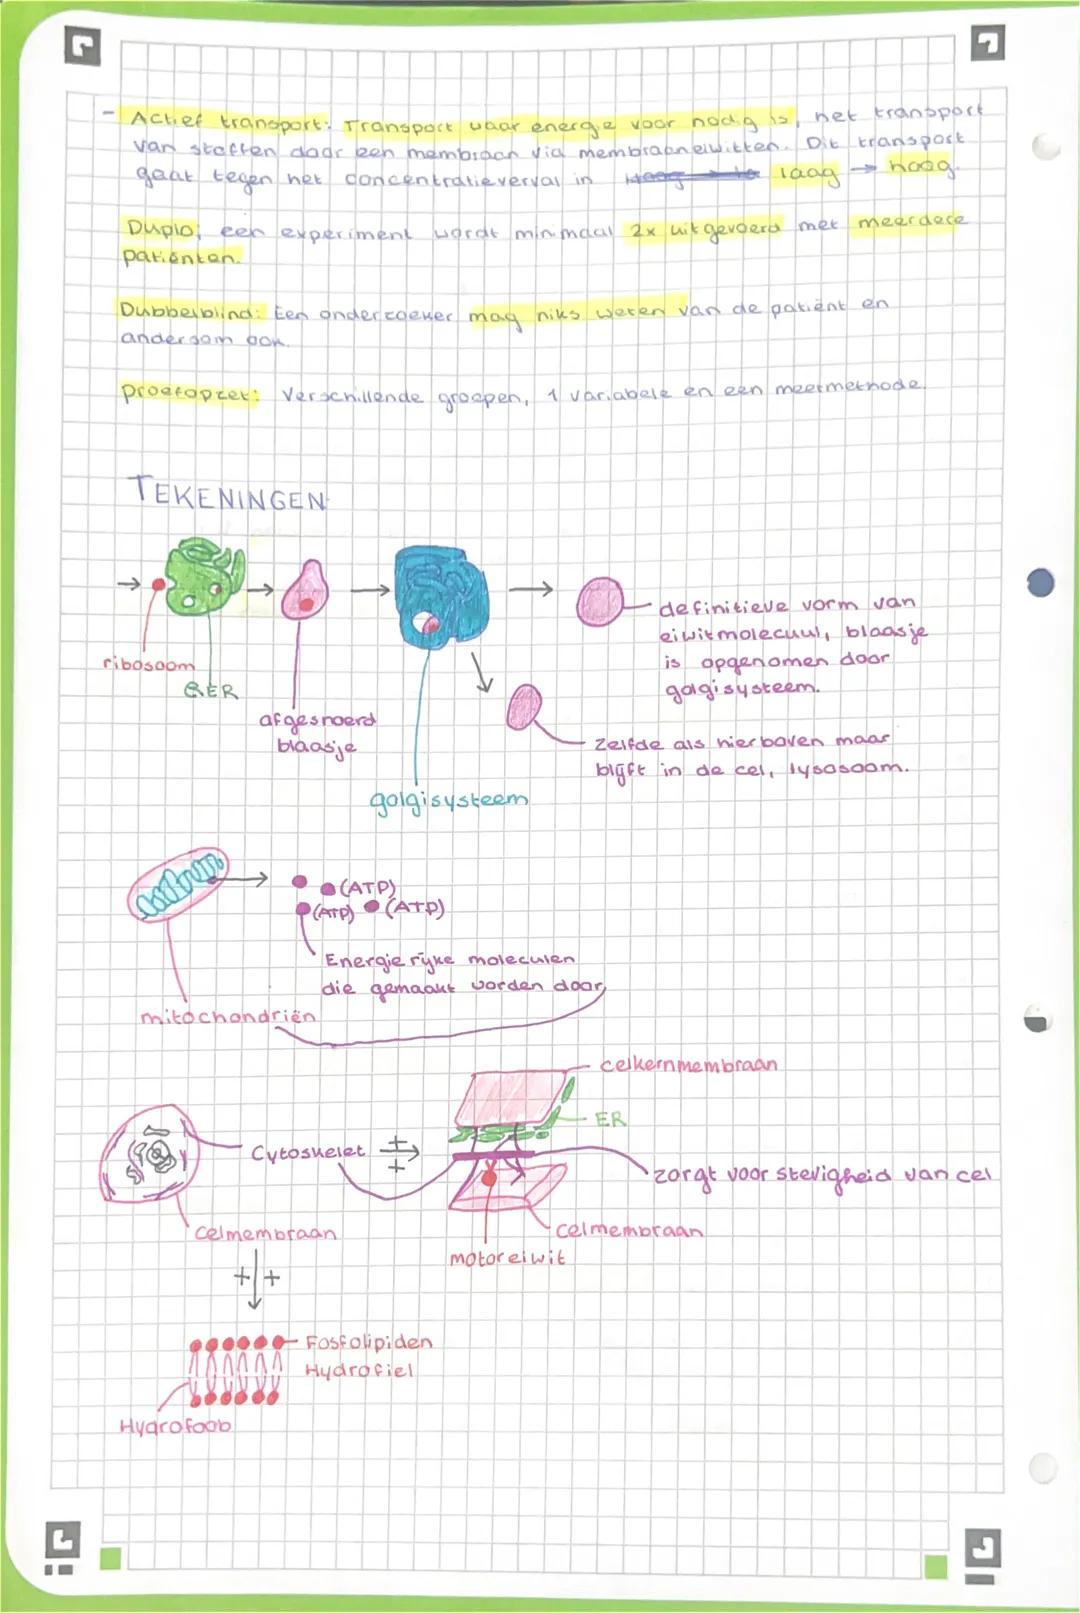 - Actief transport: Transport waar energie voor nodig is, het transport
van stoffen door een membraan via membraaneiwitten. Dit transport
gaat tegen het concentratieverval in laag → hoog.
Duplo; een experiment wordt minimaal 2x uitgevoerd met meerdere
patiënten.
Dubbelblind: Een onderzoeker mag niks weten van de patiënt en
andersom ook.
proefopzet: Verschillende groepen, 1 variabele en een meetmethode.
TEKENINGEN
ribosoom
RER
afgesnoerd
blaasje
golgisysteem
definitieve vorm van
eiwitmolecuul, blaasje
is opgenomen door
golgisysteem.
Zelfde als hierboven maar
blijft in de cel, lysosoom.
(ATP)
(ATP) (ATP)
Energie rijke moleculen
die gemaakt worden door
mitochondriën
celkernmembraan
ER
Cytoskelet
zorgt voor stevigheid van cel
Celmembraan
Celmembraan
motoreiwit
Fosfolipiden
Hydrofiel
Hydrofoob